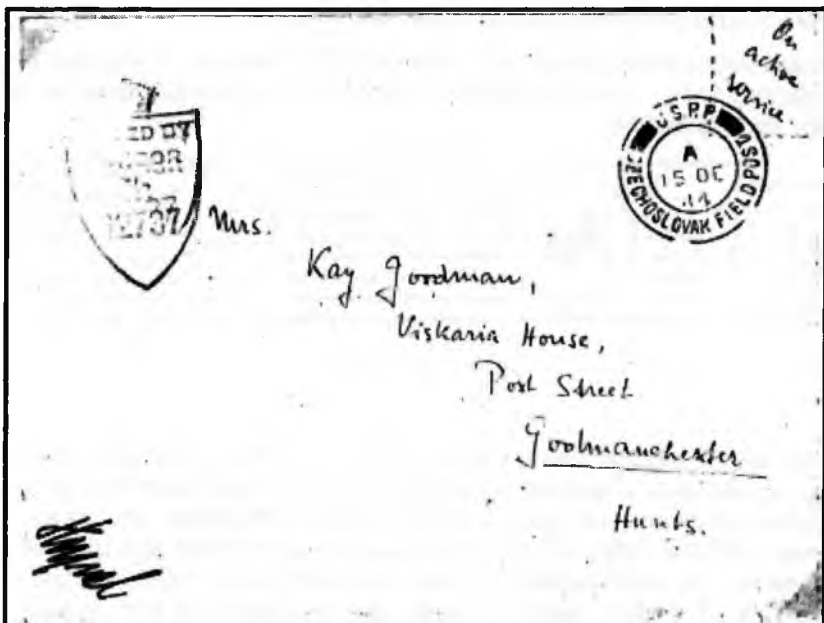 On
active
service.
ČS.P.P.
CZECHOSLOVAK FIELD POST
A
15 DE
44
Mrs.
Kay Goodman,
Viskaria House,
Post Street
Godmanchester
Hunts.